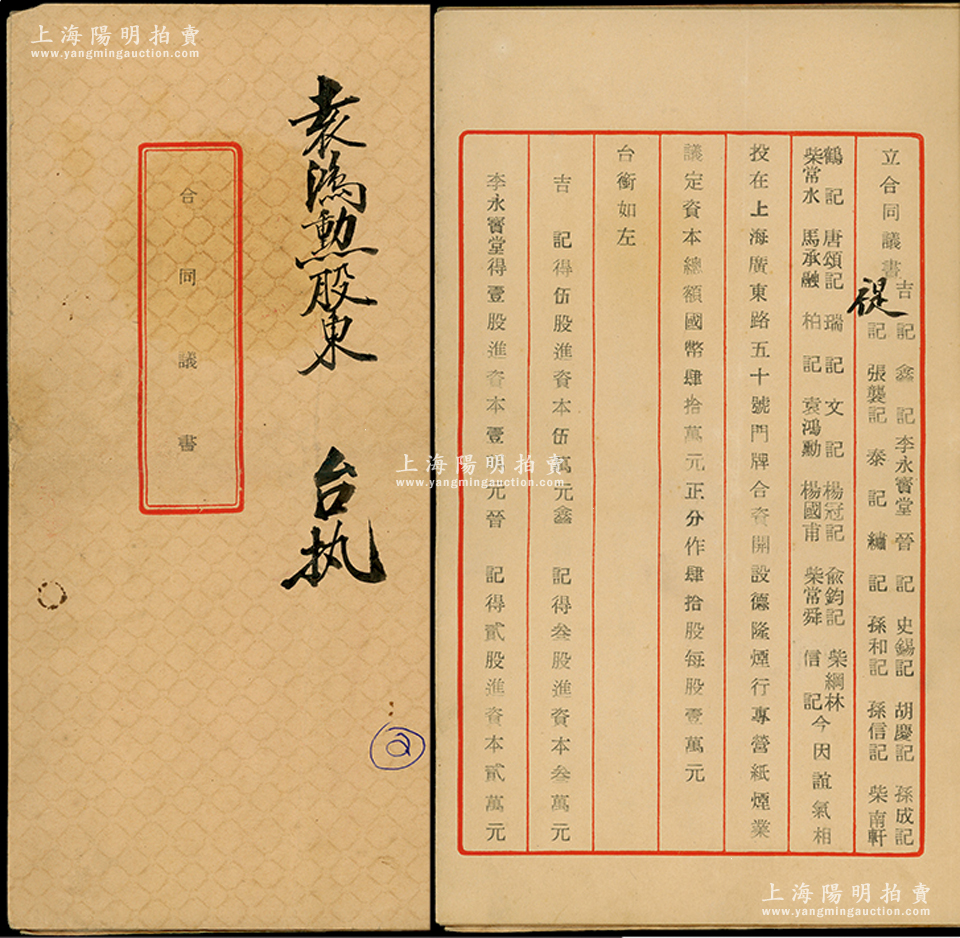 上海陽明拍賣
www.yangmingauction.com
袁鴻勳股東 台执
合同議書
2
立合同議書
吉記 鑫記 李永寶堂 晉記 史錫記 胡慶記 孫成記
禔記 張襲記 泰記 繡記 孫和記 孫信記 柴南軒
鶴記 唐頌記 瑞記 文記 楊冠記 俞鈞記 柴綱林
柴常水 馬承融 柏記 袁鴻勳 楊國甫 柴常舜 信記
今因誼氣相
投在上海廣東路五十號門牌合資開設德隆煙行專營紙煙業
議定資本總額國幣肆拾萬元正分作肆拾股每股壹萬元
台銜如左
吉記得伍股進資本伍萬元鑫記得叁股進資本叁萬元
李永寶堂得壹股進資本壹萬元晉記得貳股進資本貳萬元
上海陽明拍賣
www.yangmingauction.com
上海陽明拍賣
www.yangmingauction.com